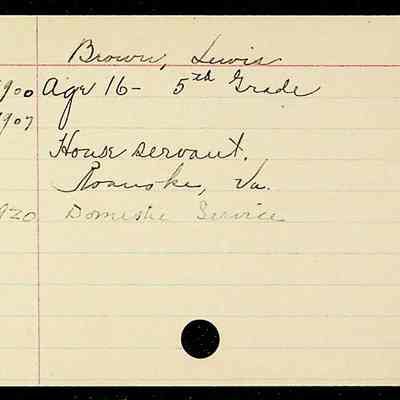 Brown, Lewis
1900 Age 16 - 5th Grade
1907
House servant.
Roanoke, Va.
1920 Domestic Service